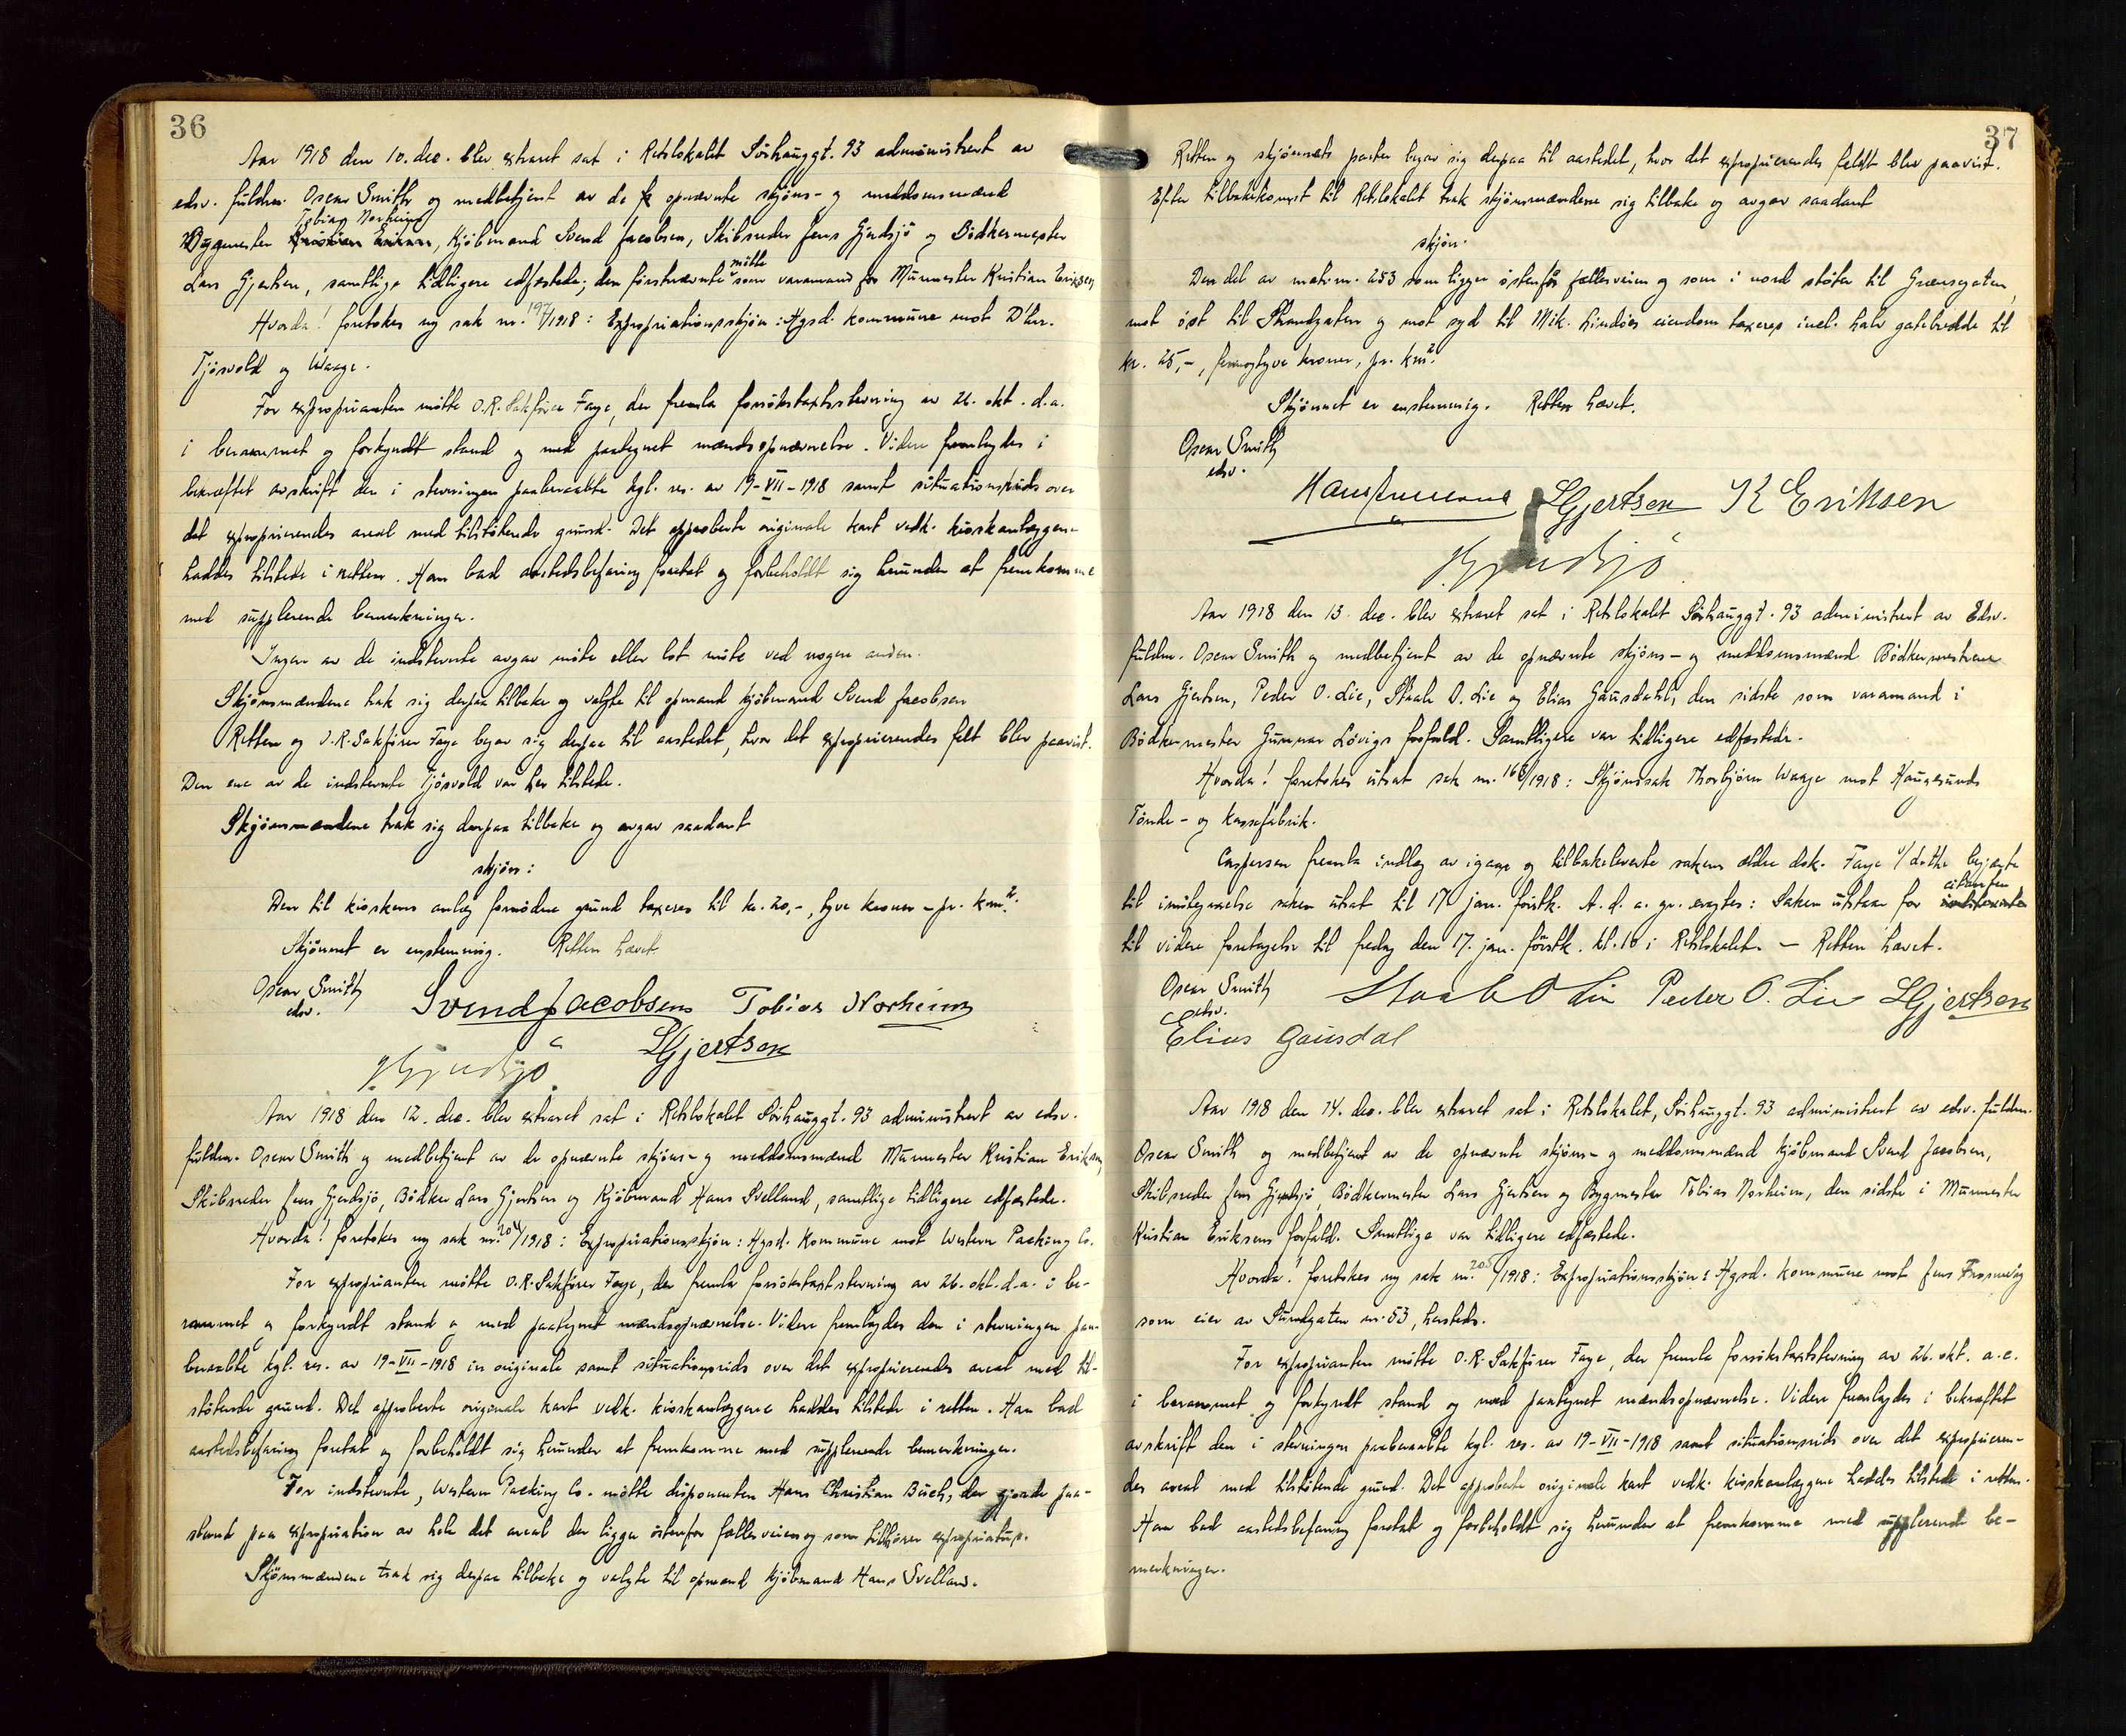 36
Aar 1918 den 10. dec. blev extraret sat i Retslokalet Sörhauggt. 93 administrert av
edsv. fuldm. Oscar Smith og medbetjent av de opnævnte skjöns- og meddomsmænd
Tobias Norheim
Byggmester Kristian Eriksen, Kjöbmand Svend Jacobsen, Skibsreder Jens Gjerdsjö og Bödkermester
mötte
Lars Gjertsen, samtlige tidligere edfæstede; den förstnævnte som varamand for Murmester Kristian Eriksen
Hvorda! foretokes ny sak nr. 197/1918: Expropriationsskjön: Hgsd. kommune mot D'hrr.
Tjösvold og Waage.
For exproprianten mötte O.R. Sakförer Faye, der fremla forsökstaxtstevning av 26. okt. d.a.
i berammet og forkyndt stand og med paategnet mændsopnævnelse. Videre fremlagdes i
bekræftet avskrift den i stevningen paaberaabte kgl. res. av 19-VII-1918 samt situationsrids over
det exproprierendes areal med tilstötende grund. Det approberte originale kart vedk. kioskanlæggene
haddes tilstede i retten. Han bad aastedsbefaring foretat og forbeholdt sig herunder at fremkomme
med supplerende bemerkninger.
Ingen av de indstevnte avgav möte eller lot möte ved nogen anden.
Skjönsmændene trak sig derpaa tilbake og valgte til opmand kjöbmand Svend Jacobsen
Retten og O.R. Sakförer Faye begav sig derpaa til aastedet, hvor det exproprierendes felt blev paavist.
Den ene av de indstevnte Tjösvold var her tilstede.
Skjönsmændene trak sig derpaa tilbake og avgav saadant
skjön:
Den til kioskens anlæg fornödne grund taxeres til kr. 20,-, tyve kroner - pr. kvm².
Skjönnet er enstemmig. Retten hævet
Oscar Smith
edsv.
Svend Jacobsen Tobias Norheim
J. Gjerdsjö LGjertsen
Aar 1918 den 12. dec. blev extraret sat i Retslokalet Sörhauggt. 93 administrert av edsv.
fuldm. Oscar Smith og medbetjent av de opnævnte skjöns- og meddomsmænd Murmester Kristian Eriksen,
Skibsreder Jens Gjerdsjö, Bödker Lars Gjertsen og Kjöbmand Hans Svelland, samtlige tidligere edfæstede.
Hvorda! foretokes ny sak nr. 204/1918: Expropriationsskjön: Hgsd. Kommune mot Western Packing Co.
For exproprianten mötte O.R. Sakförer Faye, der fremla forsökstaxtstevning av 26. okt. d.a. i be-
rammet og forkyndt stand og med paategnet mændsopnævnelse. Videre fremlagdes den i stevningen paa-
beraabte kgl. res. av 19-VII-1918 in originale samt situationsrids over det exproprierendes areal med til-
stötende grund. Det approberte originale kart vedk. kioskanlæggene haddes tilstede i retten. Han bad
aastedsbefaring foretat og forbeholdt sig herunder at fremkomme med supplerende bemerkninger.
For indstevnte, Western Packing Co. mötte disponenten Hans Christian Busch, der gjorde paa-
stand paa expropriation av hele det areal der ligger östenfor fællesveien og som tilhörer expropriatus.
Skjönsmændene trak sig derpaa tilbake og valgte til opmand kjöbmand Hans Svelland.
37
Retten og skjönnets parter begav sig derpaa til aastedet, hvor det exproprierendes feldt blev paavist.
Efter tilbakekomst til Retslokalet trak skjönsmændene sig tilbake og avgav saadant
skjön.
Den del av matr.nr. 253 som ligger östenfor fællesveien og som i nord stöter til Grænsegaten,
mot öst til Strandgaten og mot syd til Mik. Lindöes eiendom taxeres incl. halv gatebredde til
kr. 25,-, femogtyve kroner, pr. kvm².
Skjönnet er enstemmig. Retten hævet.
Oscar Smith
edsv.
LGjertsen K Eriksen
J. Gjerdsjö
Aar 1918 den 13. dec. blev extraret sat i Retslokalet Sörhauggt. 93 administrert av Edsv.
fuldm. Oscar Smith og medbetjent av de opnævnte skjöns- og meddomsmænd Bödkermestrene
Lars Gjertsen, Peder O. Lie, Staale O. Lie og Elias Gausdahl, den sidste som varamand i
Bödkermester Gunnar Lövigs forfald. Samtligere var tidligere edfæstede.
Hvorda! foretokes utsat sak nr. 168/1918: Skjönssak Thorbjörn Waage mot Haugesunds
Tönde- og kassefabrik.
Caspersen fremla indlæg av igaar og tilbakeleverte sakens ældre dok. Faye v/ dette begjærte
citanten
til imötegaaelse saken utsat til 17 jan. förstk. A. d. a. gr. eragtes: Saken utstaar for indstevnte
til videre foretagelse til fredag den 17. jan. förstk. kl. 10 i Retslokalet. - Retten hævet.
Oscar Smith
edsv.
Staale O Lie Peder O. Lie LGjertsen
Elias Gausdal
Aar 1918 den 14. dec. blev extraret sat i Retslokalet, Sörhauggt. 93 administrert av edsv. fuldm.
Oscar Smith og medbetjent av de opnævnte skjöns- og meddomsmænd kjöbmand Svend Jacobsen,
Skibsreder Jens Gjerdsjö, Bödkermester Lars Gjertsen og Bygmester Tobias Norheim, den sidste i Murmester
Kristian Eriksens forfald. Samtlige var tidligere edfæstede.
Hvorda! foretokes ny sak nr. 205/1918: Expropriationsskjön: Hgsd. kommune mot Jens
som eier av Sundgaten nr. 53, hersteds.
For exproprianten mötte O.R. Sakförer Faye, der fremla forsökstaxtstevning av 26. okt. a.c.
i berammet og forkyndt stand og med paategnet mændsopnævnelse. Videre fremlagdes i bekræftet
avskrift den i stevningen paaberaabte kgl. res. av 19-VII-1918 samt situationsrids over det exproprieren-
des areal med tilstötende grund. Det approberte originale kart vedk. kioskanlæggene haddes tilstede i retten.
Han bad aastedsbefaring foretat og forbeholdt sig herunder at fremkomme med supplerende be-
merkninger.